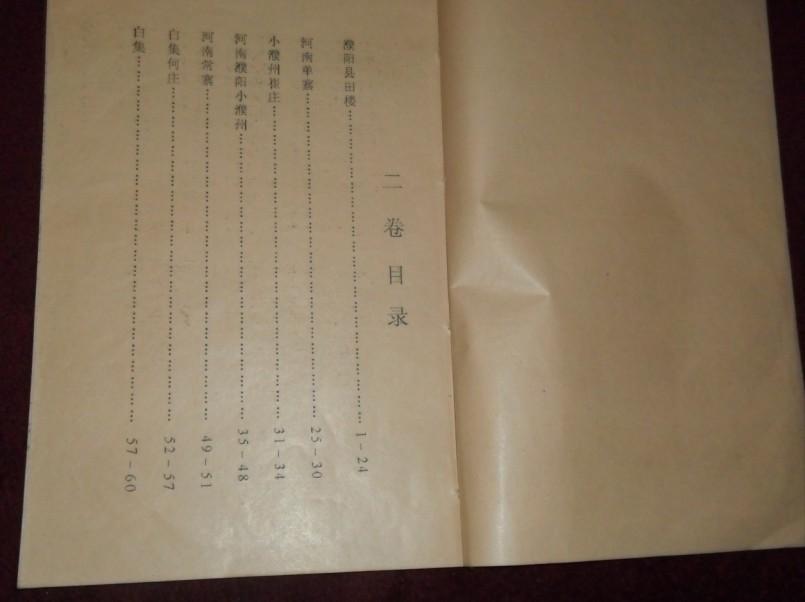 二卷目录
濮阳县田楼………………………………………………1-24
河南单寨………………………………………………25-30
小濮州崔庄………………………………………………31-34
河南濮阳小濮州………………………………………………35-48
河南常寨………………………………………………49-51
白集何庄………………………………………………52-57
白集………………………………………………57-60